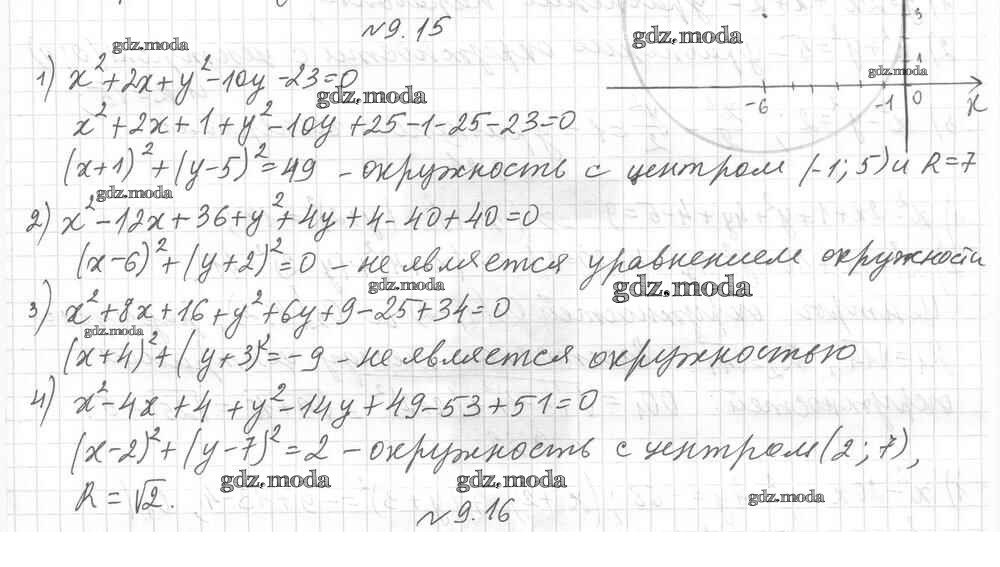 N9.15
gdz.moda
gdz.moda
3
1) x²+2x+y²-10y-23=0
gdz.moda
gdz.moda
1
-6 -1 0 x
x²+2x+1+y²-10y+25-1-25-23=0
(x+1)²+(y-5)²=49 - окружность с центром (-1; 5) и R=7
gdz.moda
2) x²-12x+36+y²+4y+4-40+40=0
(x-6)²+(y+2)²=0 - не является уравнением окружности
gdz.moda
gdz.moda
3) x²+8x+16+y²+6y+9-25+34=0
gdz.moda
(x+4)²+(y+3)²=-9 - не является окружностью
4) x²-4x+4+y²-14y+49-53+51=0
(x-2)²+(y-7)²=2 - окружность с центром (2; 7),
gdz.moda
gdz.moda
gdz.moda
R=√2.
N9.16